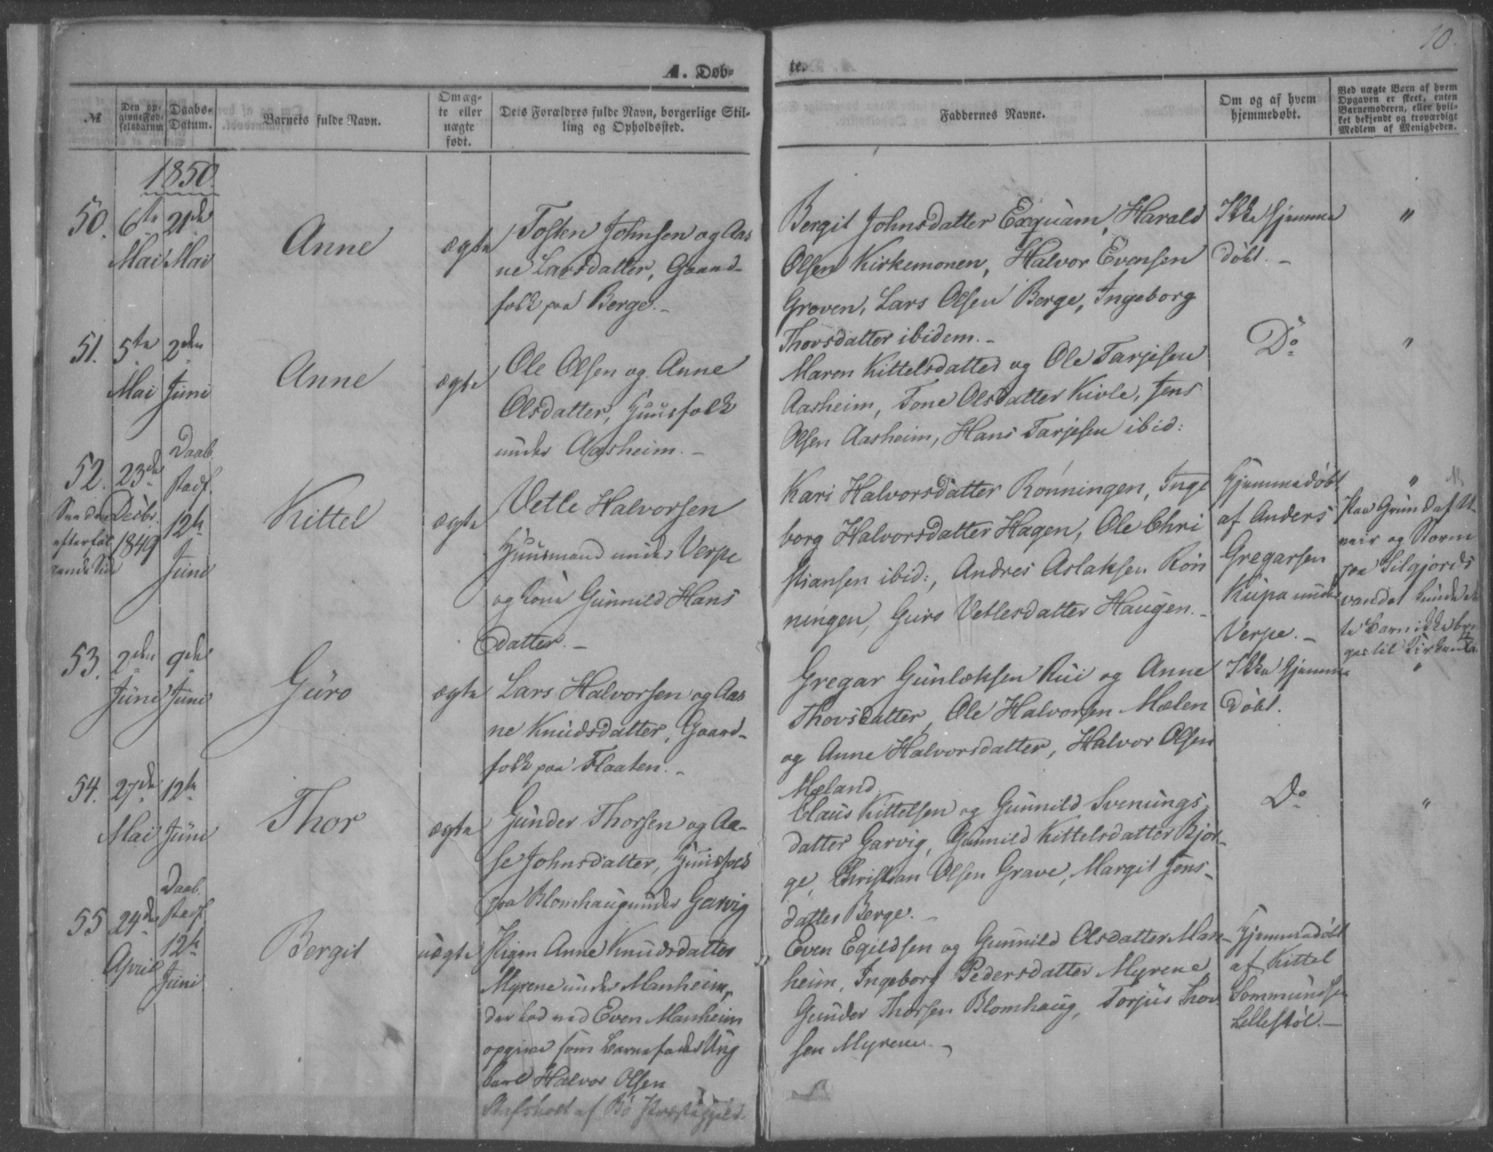 10.
A. Døb-
te.
№
Den op-
givne Fød-
selsdatum
Daabs-
Datum.
Barnets fulde Navn.
Om æg-
te eller
uægte
født.
Dets Forældres fulde Navn, borgerlige Stil-
ling og Opholdssted.
Faddernes Navne.
Om og af hvem
hjemmedøbt.
Ved uægte Børn af hvem
Opgaven er skeet, enten
Barnemoderen, eller hvil-
ket bekjendt og troværdigt
Medlem af Menigheden.
1850.
50.
6te
Mai
21de
Mai
Anne
ægte
Tosten Johnsen og Aas
ne Larsdatter, Gaard-
folk paa Berge. -
Bergit Johnsdatter Exquam, Harald
Olsen Kirkemonen, Halvor Evensen
Groven, Lars Olsen Berge, Ingeborg
Thorsdatter ibidem. -
Ikke hjemme
døbt. -
"
51.
5te
Mai
2den
Juni
Anne
ægte
Ole Olsen og Anne
Olsdatter, Huusfolk
under Aasheim. -
Maren Kittelsdatter og Ole Tarjesen
Aasheim, Tone Olsdatter Kivle, Jens
Olsen Aasheim, Hans Tarjesen ibid:
Do
"
52.
23de
Decbr.
1849
Daab
stadf.
12te
Juni
Kittel
ægte
Vetle Halvorsen
Huusmand under Verpe
og Kone Gunnild Hans
datter. -
Kari Halvorsdatter Rønningen, Inge
borg Halvorsdatter Hagen, Ole Chri
stiansen ibid:, Andres Aslaksen Røn
ningen, Guro Vetlesdatter Haugen. -
Hjemmedøbt
af Anders
Gregarsen
Kupa under
Verpe. -
"
Paa Grund af U-
veir og Storm
paa Silgjords
vandet kunde det
te Barn ikke brin
ges til Kirken før
53.
2den
Juni
9de
Juni
Guro
ægte
Lars Halvorsen og Aas
ne Knudsdatter, Gaard-
folk paa Flaaten. -
Gregar Gunleksen Rui og Anne
Thovsdatter, Ole Halvorsen Mælen
og Anne Halvorsdatter, Halvor Olsen
Mæland
Ikke Hjemme
døbt.
"
54.
27de
Mai
12te
Juni
Thor
ægte
Gunder Thorsen og Aa-
se Johnsdatter, Huusfolk
paa Blomhaug under Garvig
Claus Kittelsen og Gunnild Svenungs
datter Garvig, Gunnild Kittelsdatter Bjør-
ge, Christian Olsen Grave, Margit Jens-
datter Berge. -
Do
"
55
24de
April
Daab.
stadf.
12te
Juni
Bergit
uægte
Pigen Anne Knudsdatter
Myrene under Manheim,
der lod ved Even Manheim
opgive som Barnefader Ung
karl Halvor Olsen
af Bø Præstegjeld.
Even Egildsen og Gunnild Olsdatter Man-
heim, Ingeborg Pedersdatter Myrene
Gunder Thorsen Blomhaug, Torjus Thor
sen Myrene. -
Hjemmedøbt
af Kittel
Sommundsen
Lillestøl. -